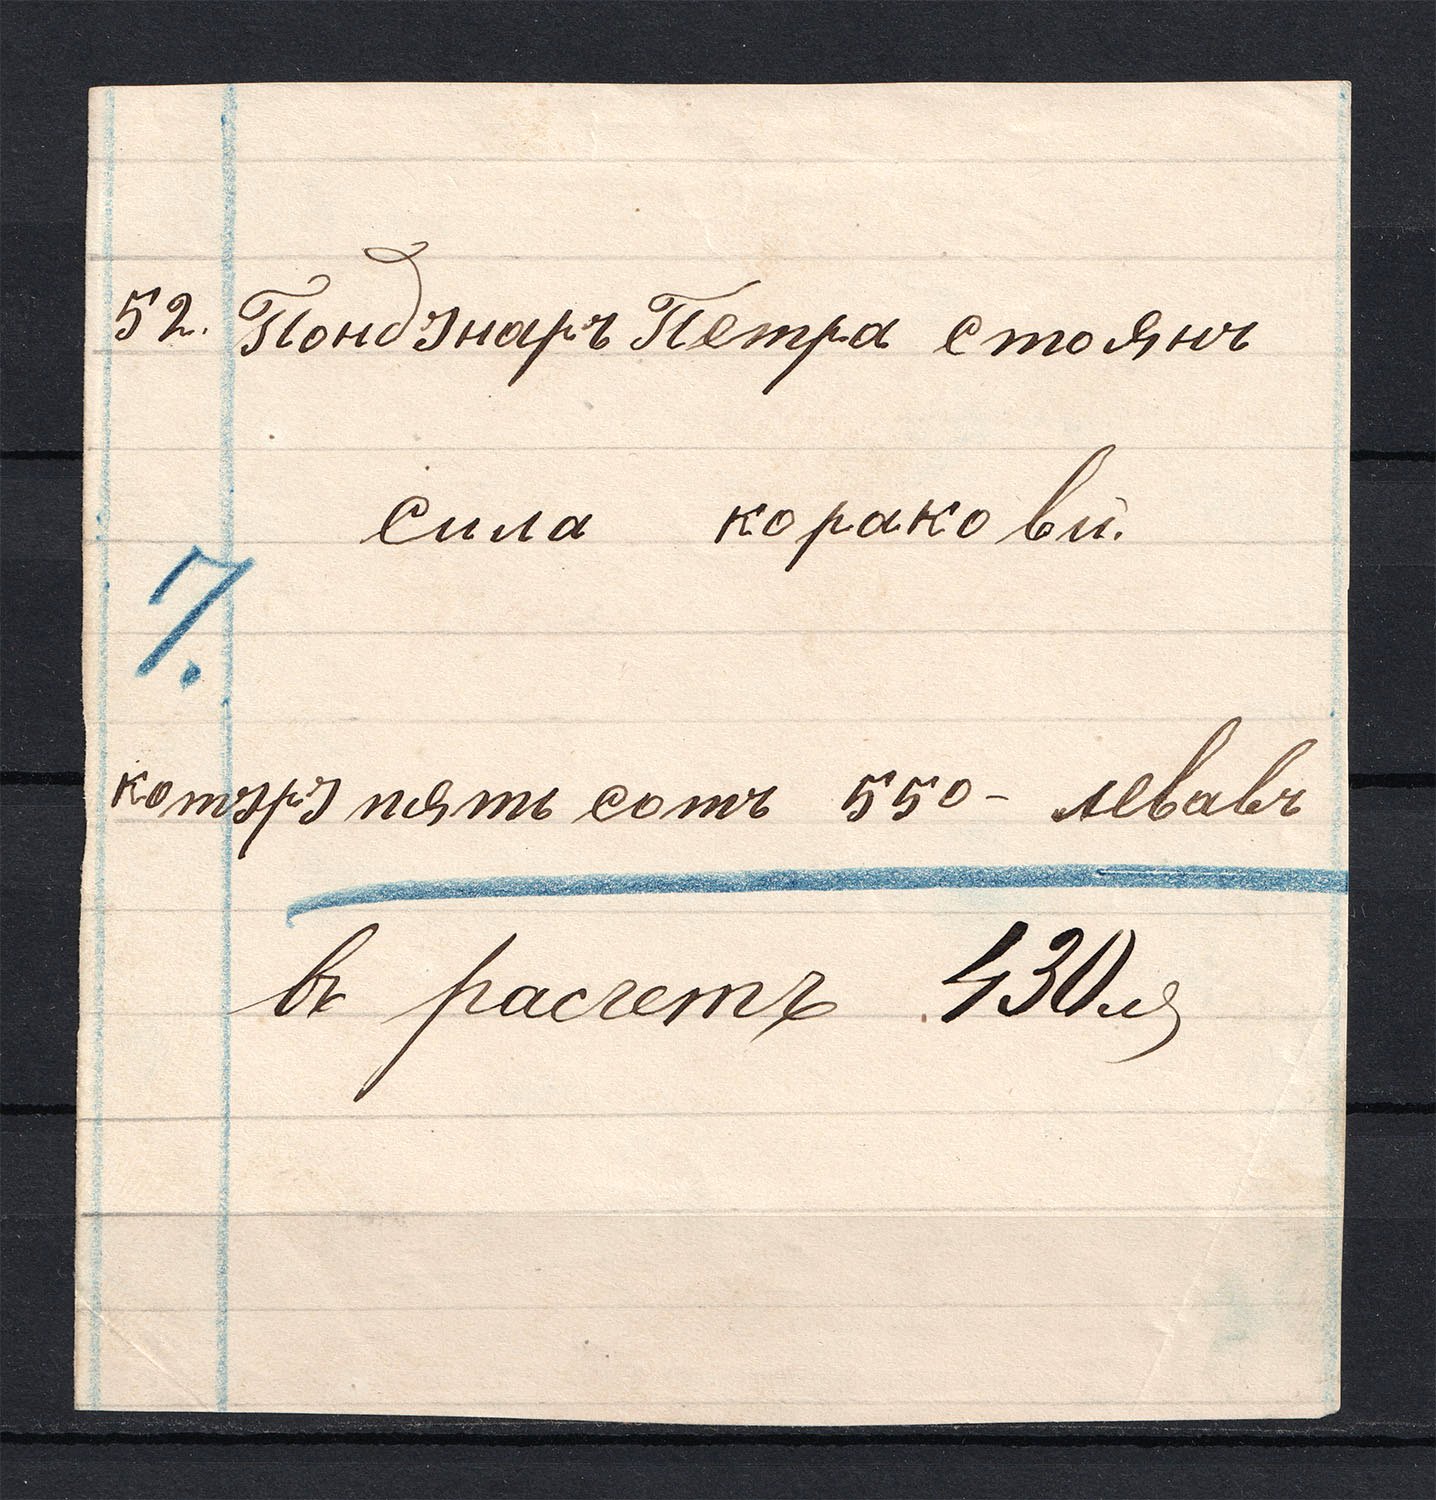 52. Пондзнаръ Петра стоянъ
сила коракови.
7.
котэрэ пять сотъ 550 – левавъ
въ расчетъ 430 ля